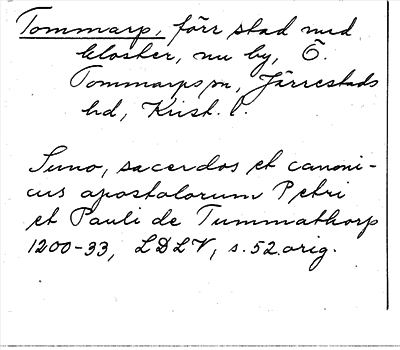 Tommarp, förr stad med
kloster, nu by, Ö.
Tommarps sn, Järrestads
hd, Krist. l.
Suno, sacerdos et canoni-
cus apostolorum Petri
et Pauli de Tummathorp
1200-33, LDLV, s. 52 orig.